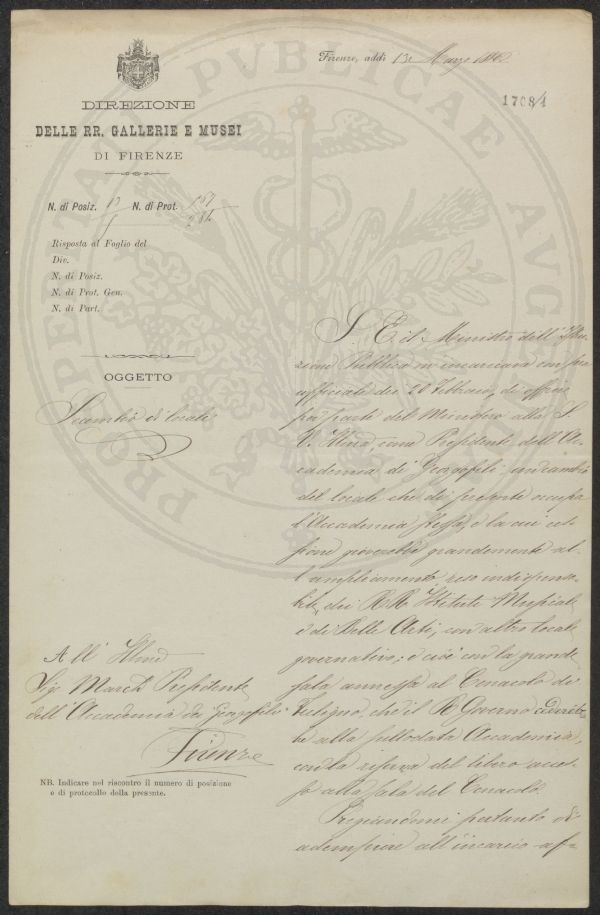 Firenze, addì 13 Marzo
17084
DIREZIONE
DELLE RR. GALLERIE E MUSEI
DI FIRENZE
N. di Posiz. N. di Prot.
Risposta al Foglio del
Div.
N. di Posiz.
N. di Prot. Gen.
N. di Part.
OGGETTO
Scambio di locali
S. E. il Ministro dell'Istru-
zione Pubblica m'incaricava con
ufficiale dei 20 Febbraio, di offrire
per parte del Ministero alla S.
V. Illma, come Presidente dell'Ac-
cademia dei Georgofili in cambio
del locale che di presente occupa
l'Accademia stessa, e la cui ces-
sione gioverebbe grandemente al-
l'ampliamento reso indispensa-
bile, dei RR. Istituti Musicale
e di Belle Arti, con altro locale
governativo; e cioè con la grande
sala annessa al Cenacolo di
Fuligno, che il R. Governo cedereb-
be alla sullodata Accademia,
con la riserva del libero acces-
so alla sala del Cenacolo.
Pregiandomi pertanto di
adempiere all'incarico af-
All' Illmo
Sig. March. Presidente
dell'Accademia dei Georgofili
Firenze
NB. Indicare nel riscontro il numero di posizione
e di protocollo della presente.
PROSPERITATI PUBLICAE AUGENDAE